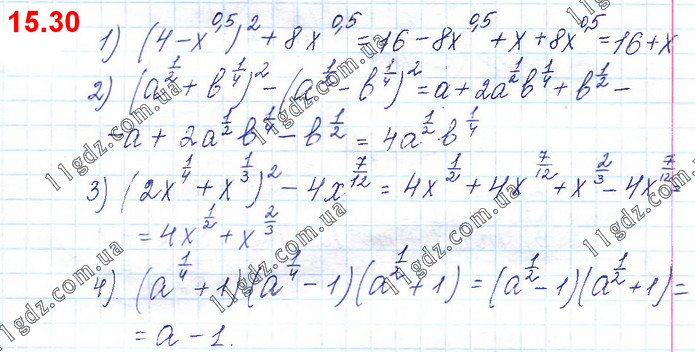 15.30
1) (4-x^0,5)^2 + 8x^0,5 = 16 - 8x^0,5 + x + 8x^0,5 = 16 + x
2) (a^1/2 + b^1/4)^2 - (a^1/2 - b^1/4)^2 = a + 2a^1/2 b^1/4 + b^1/2 -
- a + 2a^1/2 b^1/4 - b^1/2 = 4a^1/2 b^1/4
3) (2x^1/4 + x^1/3)^2 - 4x^7/12 = 4x^1/2 + 4x^7/12 + x^2/3 - 4x^7/12 =
= 4x^1/2 + x^2/3
4) (a^1/4 + 1)(a^1/4 - 1)(a^1/2 + 1) = (a^1/2 - 1)(a^1/2 + 1) =
= a - 1.
11gdz.com.ua
11gdz.com.ua
11gdz.com.ua
11gdz.com.ua
11gdz.com.ua
11gdz.com.ua